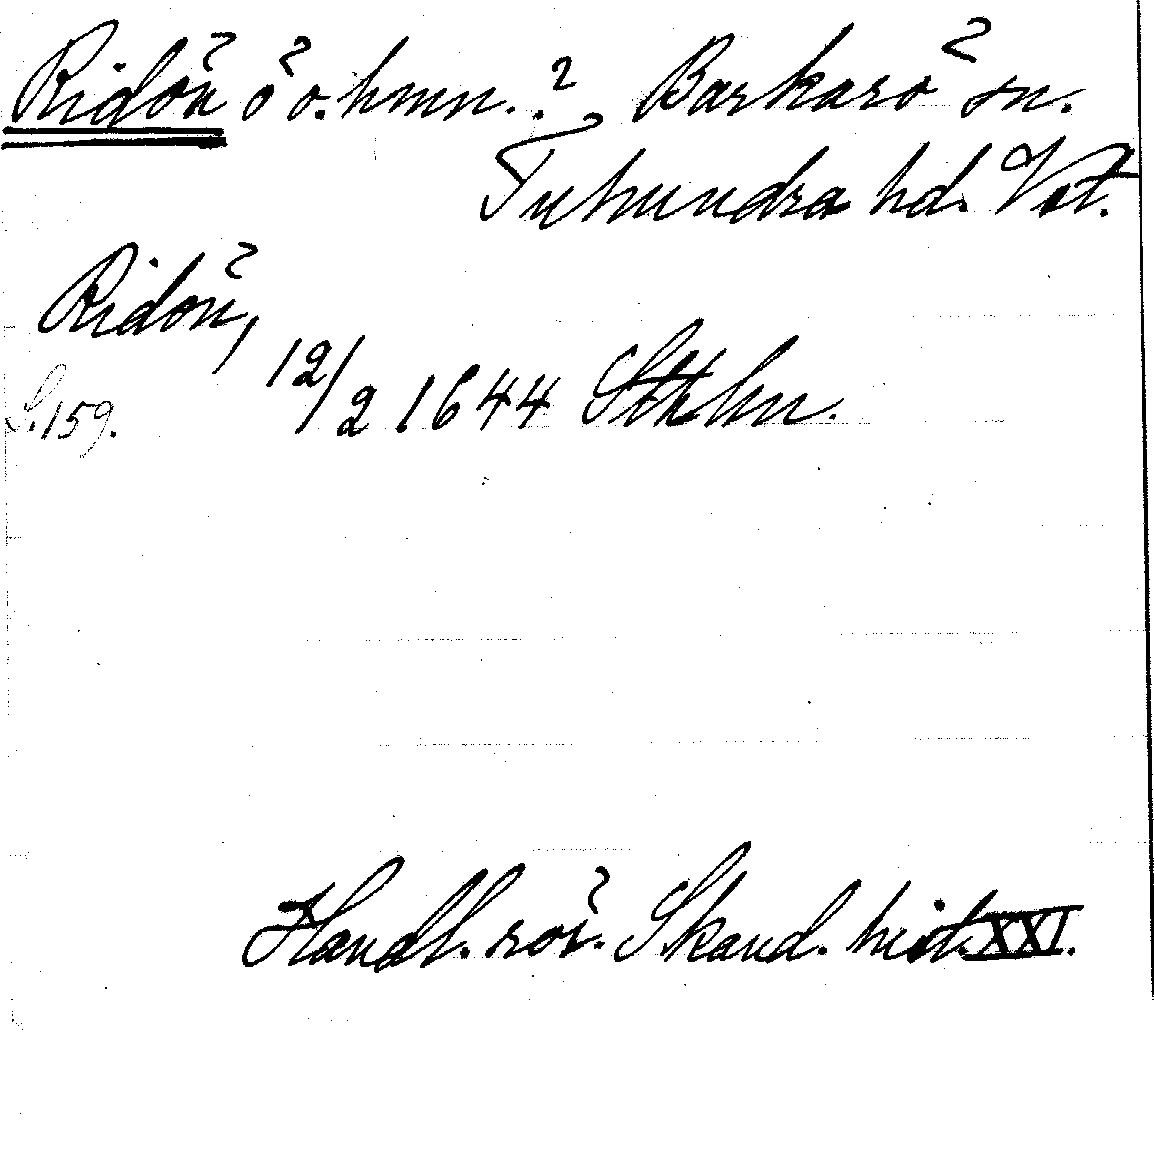 Ridön ö o. hmn.? Barkarö sn.
Tuhundra hd. Vstl.
Ridön,
S. 159. 12/2 1644 Sthlm.
Handl. rör. Skand. hist. XXI.